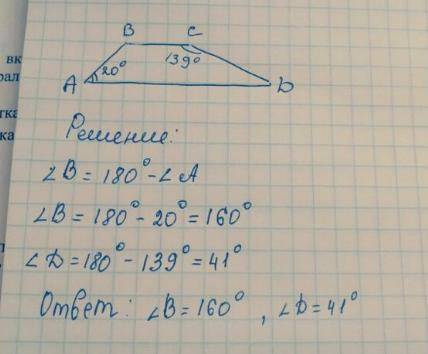 вк
рал
тка
ка
B C
20° 139°
A D
Решение:
∠B = 180° - ∠A
∠B = 180° - 20° = 160°
∠D = 180° - 139° = 41°
Ответ: ∠B = 160°, ∠D = 41°